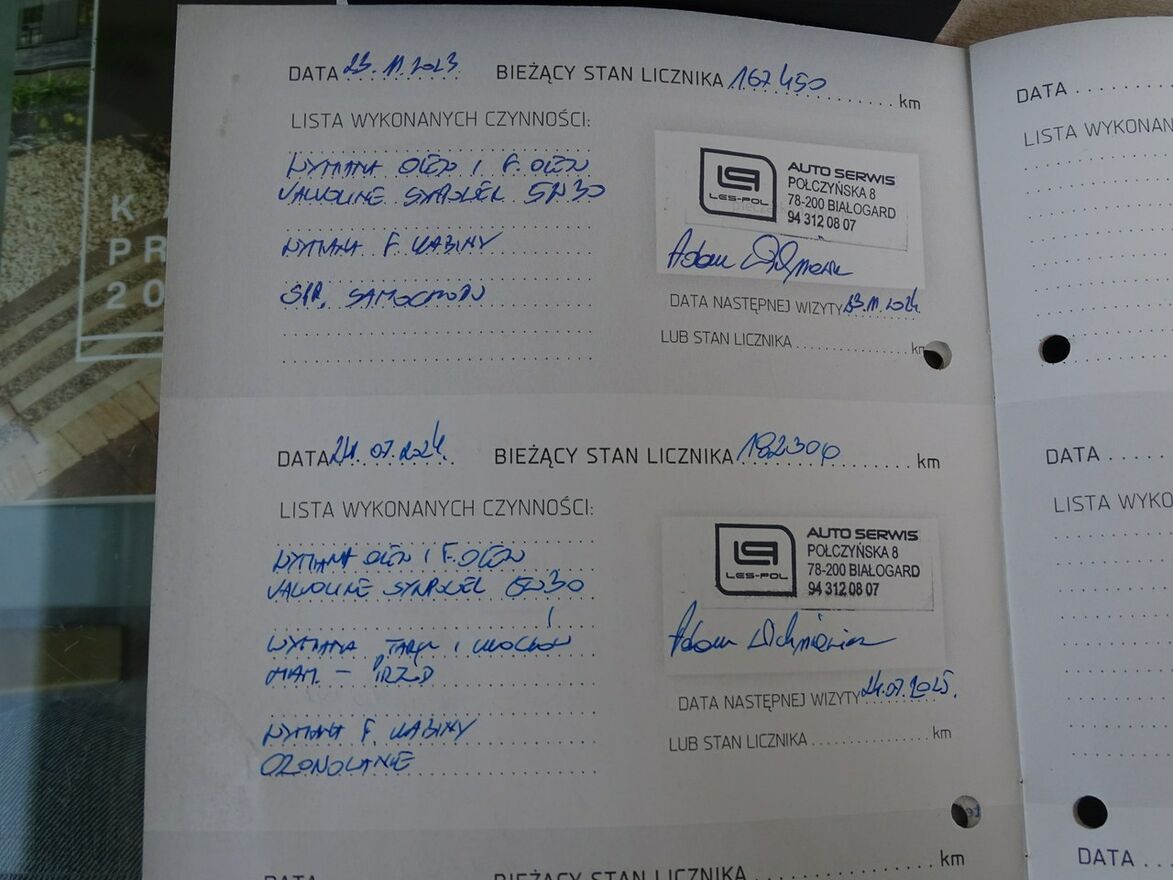 DATA 23.11.2023 BIEŻĄCY STAN LICZNIKA 167 450 km
LISTA WYKONANYCH CZYNNOŚCI:
WYMIANA OLEJU I F. OLEJU
VALVOLINE SYNPOWER 5W30
WYMIANA F. KABINY
SPR. SAMOCHODU
LES-POL
AUTO SERWIS
POŁCZYŃSKA 8
78-200 BIAŁOGARD
94 312 08 07
Adam
DATA NASTĘPNEJ WIZYTY 23.11.2024
LUB STAN LICZNIKA km
DATA 24.07.2024 BIEŻĄCY STAN LICZNIKA 182300 km
LISTA WYKONANYCH CZYNNOŚCI:
WYMIANA OLEJU I F. OLEJU
VALVOLINE SYNPOWER 5W30
WYMIANA TARCZ I KLOCKÓW
HAM. - PRZÓD
WYMIANA F. KABINY
OZONOWANIE
LES-POL
AUTO SERWIS
POŁCZYŃSKA 8
78-200 BIAŁOGARD
94 312 08 07
Adam
DATA NASTĘPNEJ WIZYTY 24.07.2025.
LUB STAN LICZNIKA km
DATA BIEŻĄCY STAN LICZNIKA km
DATA
LISTA WYKONAN
DATA
LISTA WYKO
DATA
KA
PR
20